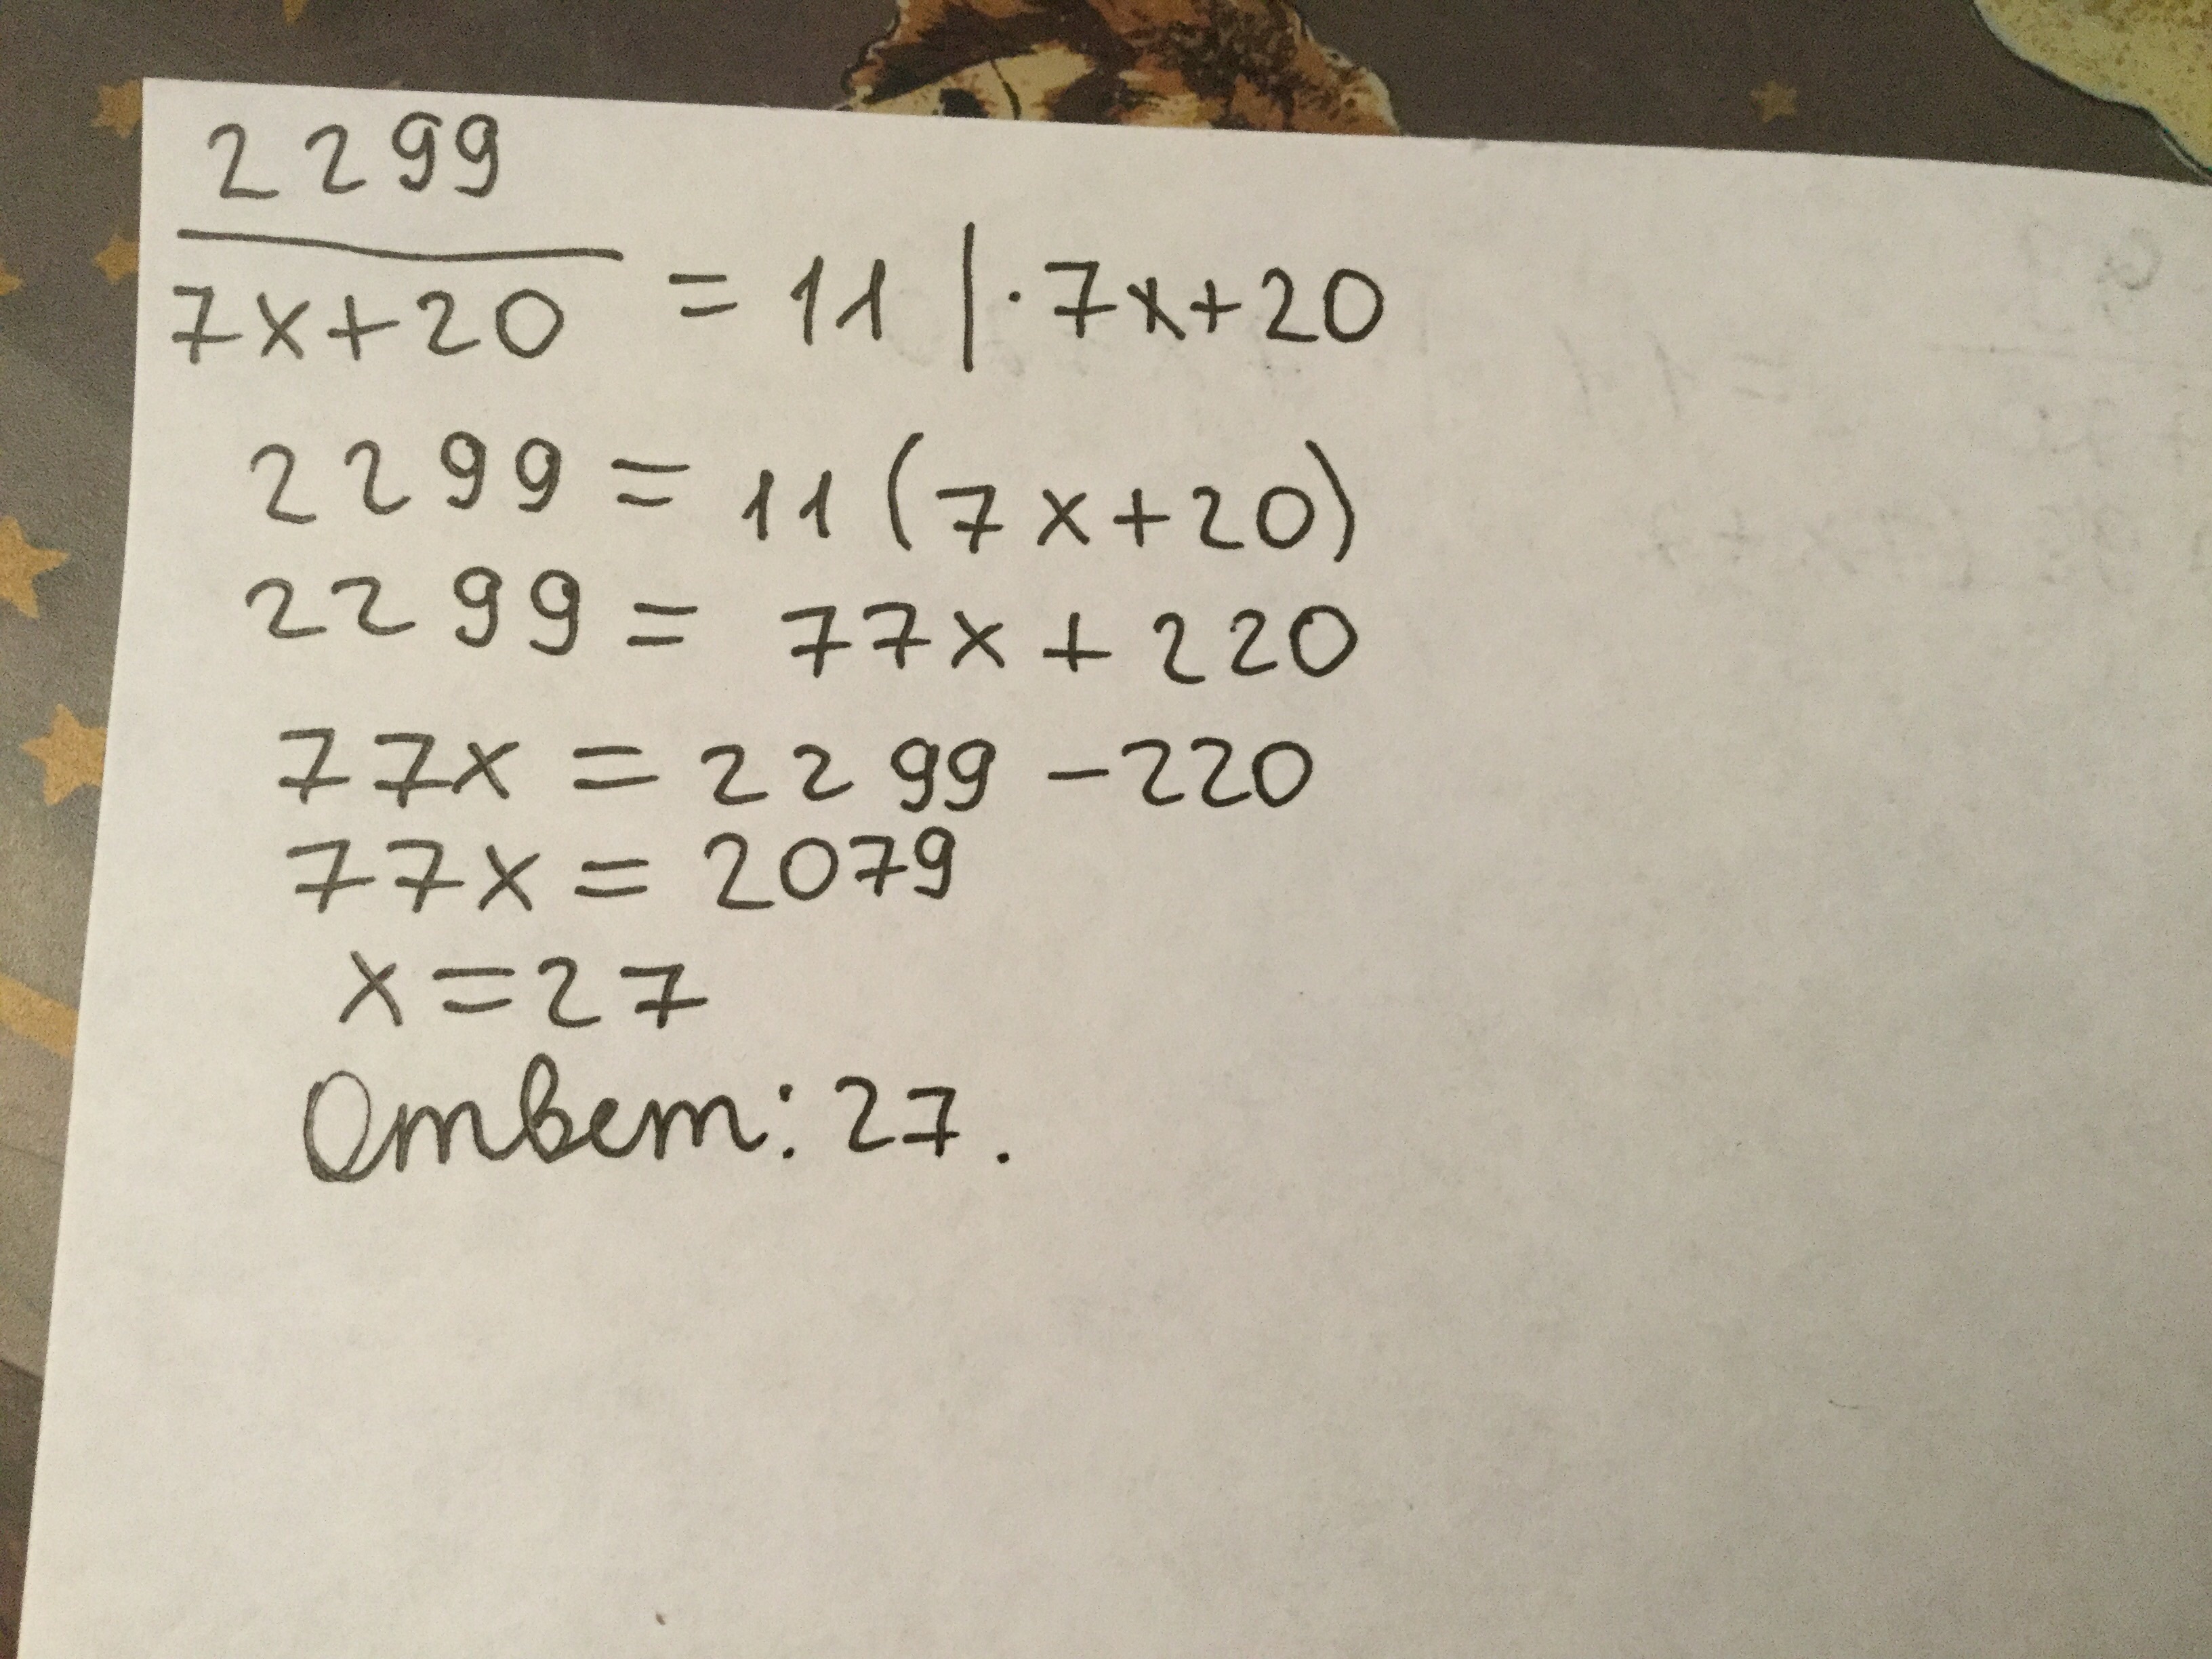 2299
7x+20 = 11 | · 7x+20
2299 = 11 (7x+20)
2299 = 77x + 220
77x = 2299 - 220
77x = 2079
x = 27
Ответ: 27.